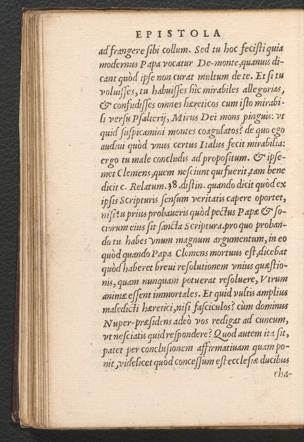 EPISTOLA
ad frangere sibi collum. Sed tu hoc fecisti quia
modernus Papa vocatur De-monte, quamuis di-
cant quòd ipse non curat multum de te. Et si tu
voluisses, tu habuisses hîc mirabiles allegorias,
& confudisses omnes hæreticos cum isto mirabi-
li versu Psalterij, Mirus Dei mons pinguis: vt
quid suspicamini montes coagulatos? de quo ego
audiui quòd vnus certus Italus fecit mirabilia:
ergo tu male concludis ad propositum. & ipse-
met Clemens, quem nesciunt qui fuerit, tam bene
dicit c. Relatum. 38. distin. quando dicit quòd ex
ipsis Scripturis sensum veritatis capere oportet,
nisi tu prius probaueris quòd pectus Papæ & so-
ciorum eius sit sancta Scriptura. pro quo proban-
do tu habes vnum magnum argumentum, in eo
quòd quando Papa Clemens mortuus est, dicebat
quòd haberet breui resolutionem vnius quæstio-
nis, quam nunquam potuerat resoluere, Vtrum
animæ essent immortales. Et quid vultis amplius
maledicti hæretici, nisi fasciculos? cùm dominus
Nuper-præsidens adeò vos redigat ad cuneum,
vt nesciatis quid respondere? Quod autem ita sit,
patet per conclusionem affirmatiuam quam po-
nit, videlicet quòd concessum est ecclesiæ ducibus
cha-